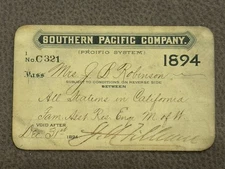 SOUTHERN PACIFIC COMPANY.
(PACIFIC SYSTEM)
No. C 321
1894
Pass Mrs. J. B. Robinson
SUBJECT TO CONDITIONS ON REVERSE SIDE
BETWEEN
All Stations in California
Fam Asst Res Eng M of W
VOID AFTER
Dec 31st 1894